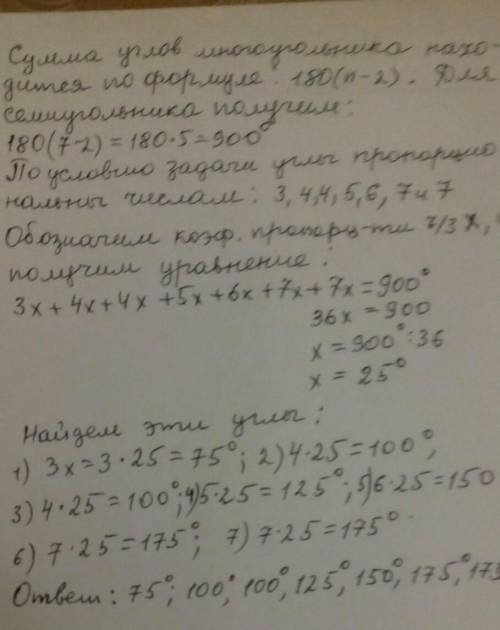 Сумма углов многоугольника нахо-
дится по формуле: 180(n-2). Для
семиугольника получим:
180(7-2)=180·5=900°
По условию задачи углы пропорцио
нальны числам: 3, 4,4, 5, 6, 7 и 7
Обозначим коэф. пропорц-ти ч/з x,
получим уравнение:
3x + 4x + 4x + 5x + 6x + 7x + 7x = 900°
36x = 900
x = 900° : 36
x = 25°
Найдем эти углы:
1) 3x = 3 · 25 = 75°; 2) 4 · 25 = 100°,
3) 4 · 25 = 100°; 4) 5 · 25 = 125°; 5) 6 · 25 = 150
6) 7 · 25 = 175°; 7) 7 · 25 = 175°
Ответ: 75°; 100°, 100°, 125°, 150°, 175°, 175